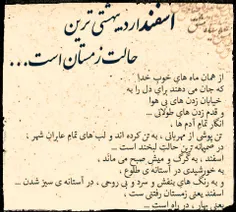 اسفند اردیبهشتی ترین
حالت زمستان است...
از همان ماه های خوب خدا
که جان می دهند برای دل را به
خیابان زدن های بی هوا
و قدم زدن های طولانی ...
انگار تمام آدم ها
تن پوشی از مهربانی ، به تن کرده اند و لب های تمام عابران شهر ،
در صمیمانه ترین حالت لبخند است ...
اسفند ، به گرگ و میش صبح می ماند ،
به خورشیدی در آستانه ی طلوع ،
و به رنگ های بنفش و سرد و بی روحی ، در آستانه ی سبز شدن ...
اسفند یعنی زمستان رفتنی ست ،
یعنی بهار ، در راه است ...